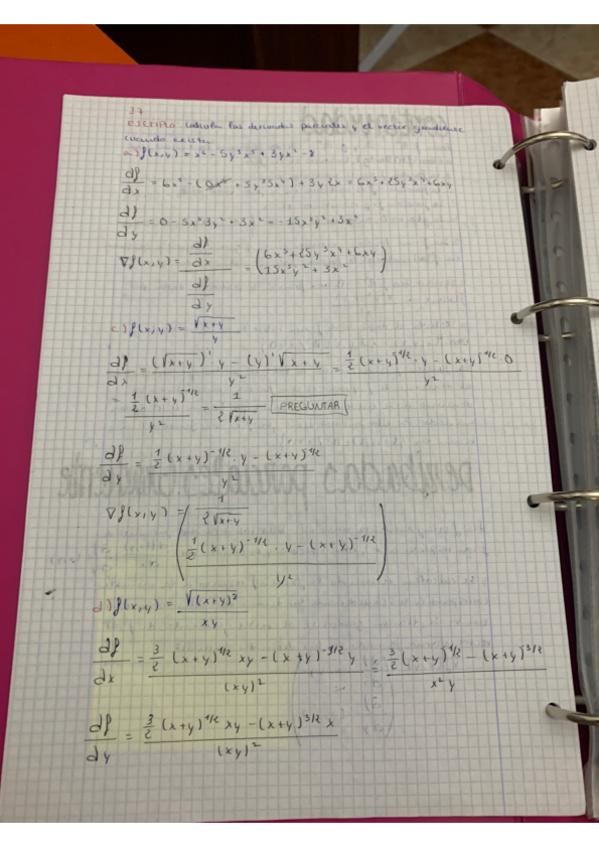 37
EJEMPLO calcula las derivadas parciales y el vector gradiente
cuando exista
a) f(x,y) = x² - 5y³x⁵ + 3yx² - 8
df/dx = 6x⁵ - (0x⁵ + 5y³5x⁴) + 3y2x = 6x⁵ + 25y³x⁴ + 6xy
df/dy = 0 - 5x⁵3y² + 3x² = -15x⁵y² + 3x²
∇f(x,y) = (df/dx / df/dy) = (6x⁵ + 25y³x⁴ + 6xy / 15x⁵y² + 3x²)
c) f(x,y) = √(x+y) / y
df/dx = ((√(x+y))' y - (y)' √(x+y)) / y² = (1/2 (x+y)^1/2 · y - (x+y)^1/2 · 0) / y²
= (1/2 (x+y)^1/2) / y² = 1 / 2√(x+y) PREGUNTAR
df/dy = (1/2 (x+y)^-1/2 · y - (x+y)^1/2) / y²
∇f(x,y) = (1 / 2√(x+y)
(1/2 (x+y)^-1/2 · y - (x+y)^-1/2) / y²)
d) f(x,y) = √(x+y)³ / xy
df/dx = (3/2 (x+y)^1/2 xy - (x+y)^-3/2 y) / (xy)² = (3/2 (x+y)^1/2 - (x+y)^3/2) / x²y
df/dy = (3/2 (x+y)^1/2 xy - (x+y)^3/2 x) / (xy)²